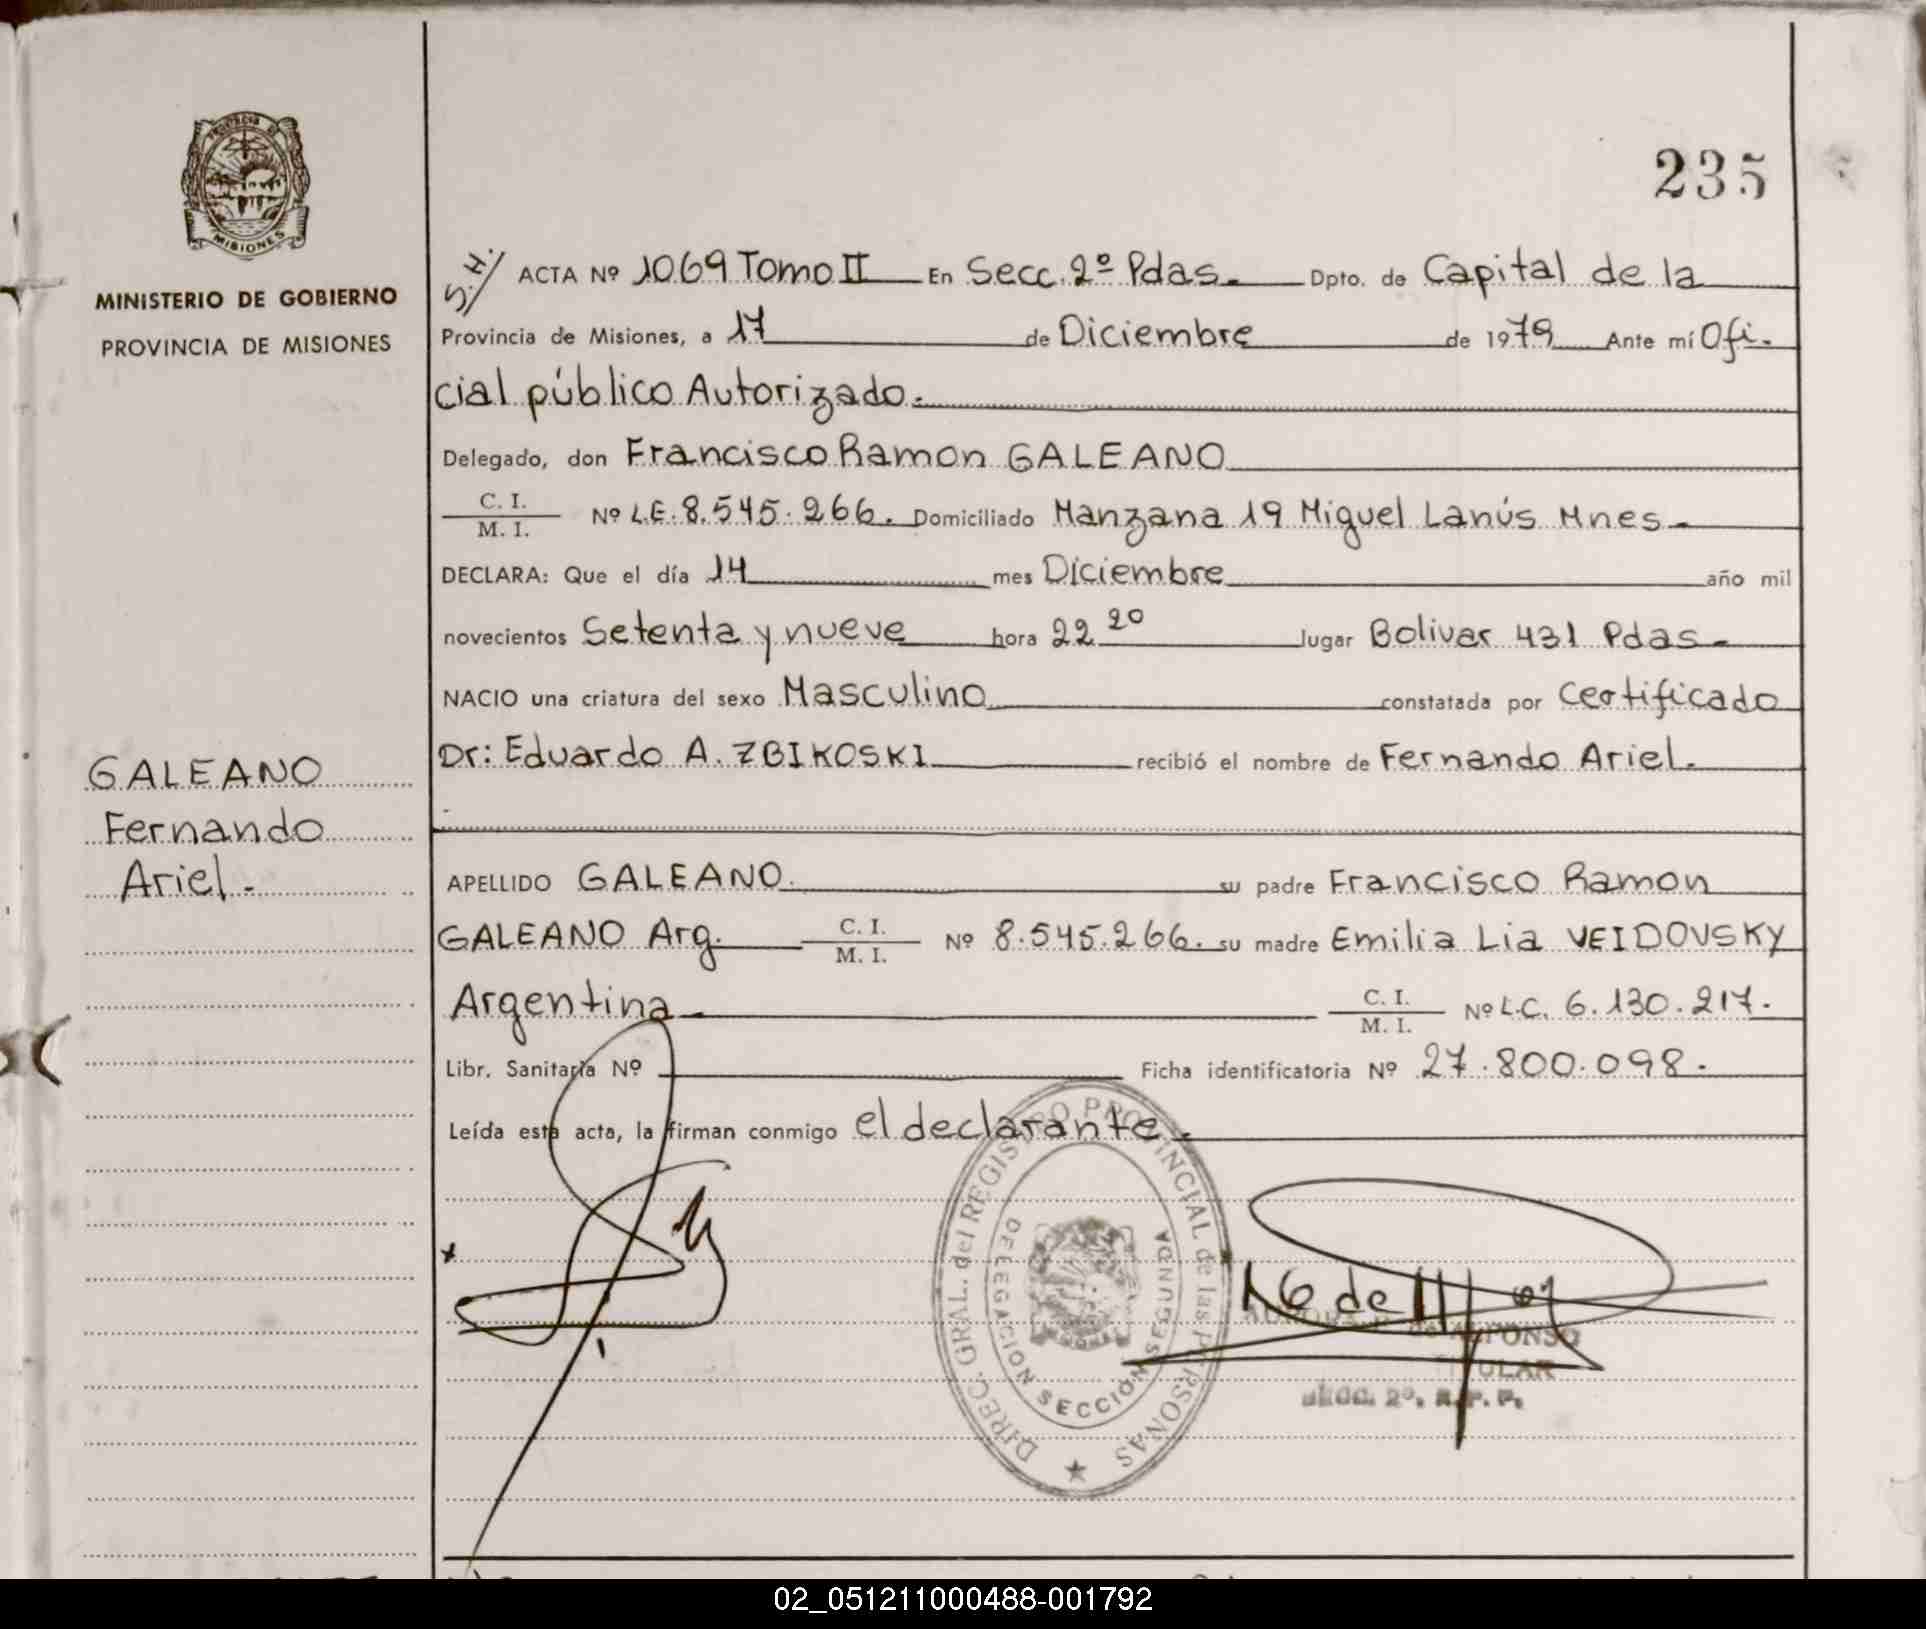 PROVINCIA DE
MISIONES
MINISTERIO DE GOBIERNO
PROVINCIA DE MISIONES
GALEANO
Fernando
Ariel.-
235
S.H./ ACTA Nº 1069 Tomo II En Secc. 2º Pdas.- Dpto. de Capital de la
Provincia de Misiones, a 17 de Diciembre de 1979 Ante mí Ofi-
cial público Autorizado.-
Delegado, don Francisco Ramon GALEANO
C. I.
M. I.
Nº L.E. 8.545.266. Domiciliado Manzana 19 Miguel Lanús Mnes.-
DECLARA: Que el día 14 mes Diciembre año mil
novecientos Setenta y nueve hora 22 20 lugar Bolivar 431 Pdas.-
NACIO una criatura del sexo Masculino constatada por Certificado
Dr: Eduardo A. ZBIKOSKI recibió el nombre de Fernando Ariel.-
APELLIDO GALEANO. su padre Francisco Ramon
GALEANO Arg. C. I. M. I. Nº 8.545.266. su madre Emilia Lia VEIDOVSKY
Argentina.- C. I. M. I. Nº L.C. 6.130.217.-
Libr. Sanitaria Nº Ficha identificatoria Nº 27.800.098.-
Leída esta acta, la firman conmigo el declarante.-
DIREC. GRAL. del REGISTRO PROVINCIAL de las PERSONAS
DELEGACION SECCION SEGUNDA
ALFONSO
TITULAR
SECC. 2º. R. P. P.
02_051211000488-001792